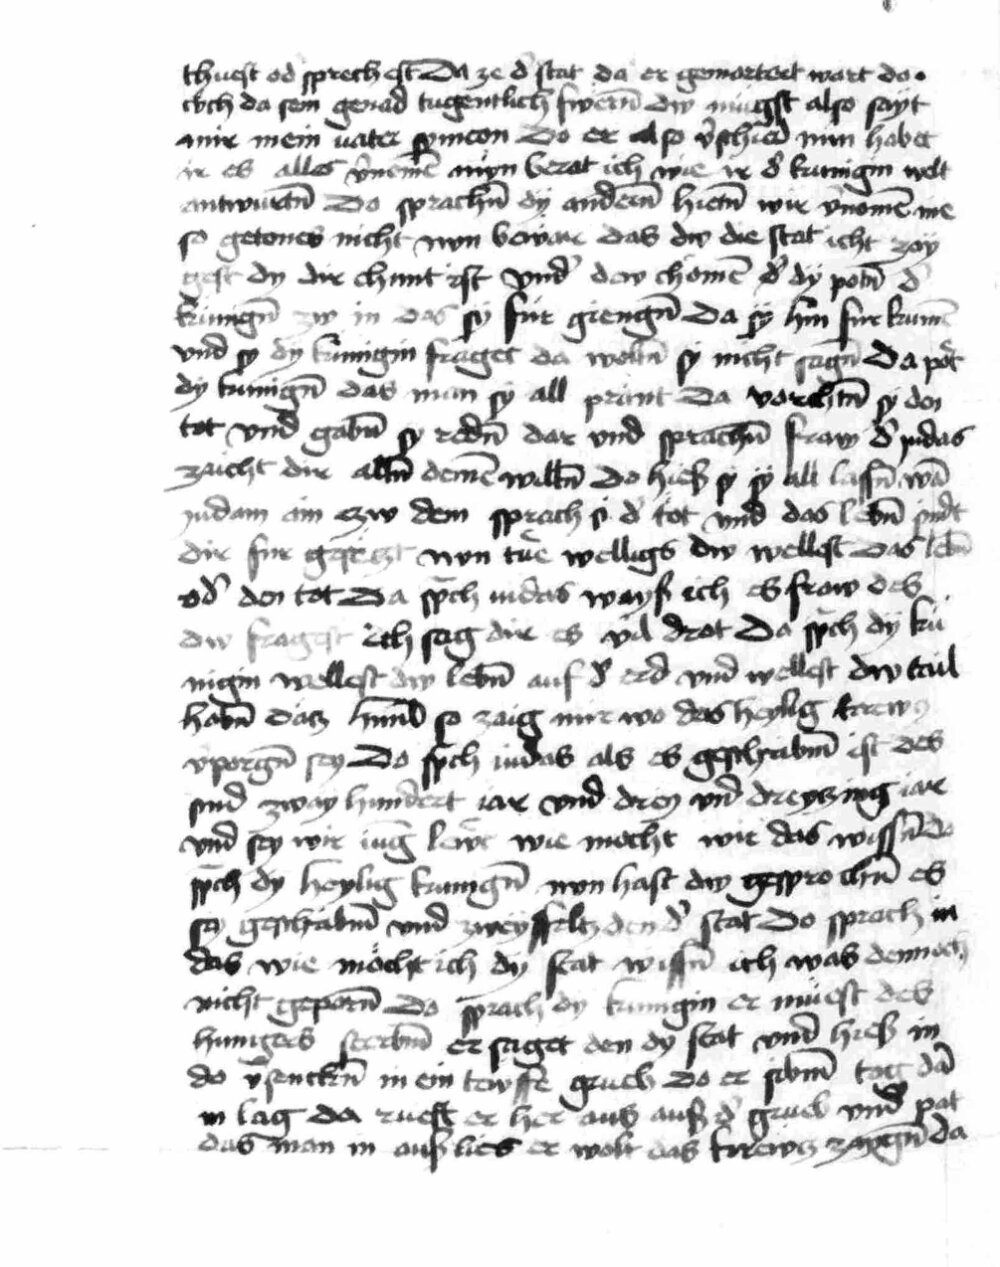 thuest od̕ sprechest Da ze d̕ stat da er gemartert wart do
ich da sein genad tugentlich swern̄ dw mügst also sayt
mir mein vater symeon Do er also v̕schied nun habet
ir es alles v̕nomē nuyn berat ich wie ir d̕ kunigin welt
antwurtn̄ Do sprachn̄ dy andern̄ hietn̄ wir v̕nomē nie
so getones nicht nun bewar das dw die stat icht zay
gest dy dir chunt ist vnd̕ dew chomē d̕ dy potn̄ d̕
kunign̄ zw in das sy für giengn̄ Da sy hin fur kumē
vnd sy dy kunigin fraget da woltn̄ sy nicht sagn̄ Da pot
dy kunign̄ das man sy all prant Da vorchtn̄ sy den
tot vnd gabn̄ sy redn̄ dar vnd sprachn̄ fraw d̕ judas
zaicht dir alln̄ deinē willn̄ Do hieß sy sy all lassn̄ wā
judam ain zw dem sprach si d̕ tot vnd das lebn̄ sindt
dir fur gesetzt nun tue welligs dw wellest Das lebn̄
od̕ den tot Da sp̄ch iudas wayß ich es fraw des
dw fragest ich sag dir es vil drot Da sp̄ch dy kü
nigin wellest dw lebn̄ auf d̕ erd vnd wellest dw tail
habn̄ datz himl so zaig mir wo das heylig krewtz
v̕porgn̄ sey Do sp̄ch iudas als es geschribm̄ ist des
sind zway hundert iar vnd drey vnd dreytzing iar
vnd sey wir iūg lewt wie mocht wir das wissn̄ do
sp̄ch dy heylig kunign̄ nun hast dw gesprochn̄ es
sey geschribm̄ vnd zweyffeltz den d̕ stat Do sprach iu
das wie möcht ich dy stat wissn̄ ich was dennoch
nicht geporn̄ Do sprach dy kunigin er müest des
hungers sterbm̄ er saget den dy stat vnd hieß in
do v̕senckn̄ in ein tewffe grueb Do er sibm̄ tag dā
in lag da rueft er her aus auß d̕ grueb vnd pat
das man in auß lies er wolt das krewtz zaygn̄ da